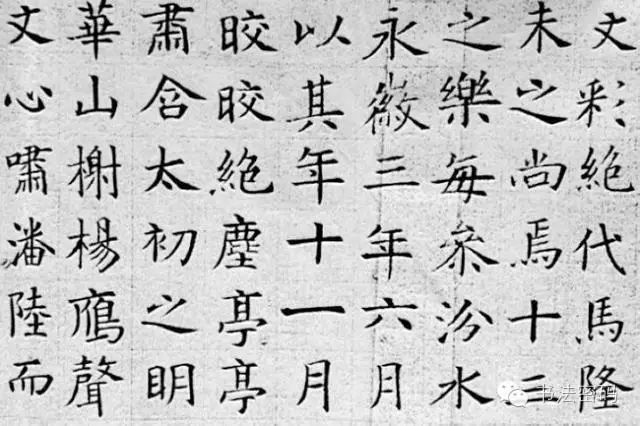 文彩絶代馬隆
未之尚焉十三
之樂每叅汾水
永徽三年六月
以其年十一月
晈晈絶塵亭亭
肅含太初之眀
華山榭楊鴈聲
文心嘯潘陸而
书法密码